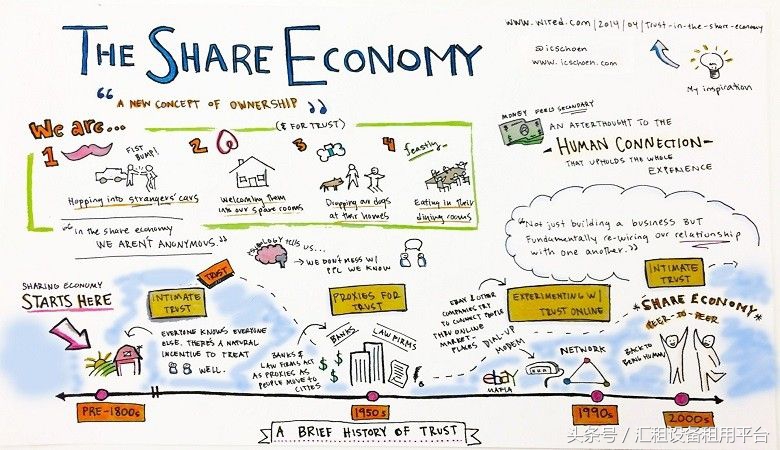 THE SHARE ECONOMY
"A NEW CONCEPT OF OWNERSHIP"
www.wired.com/2014/04/trust-in-the-share-economy
@icschoen
www.icschoen.com
My inspiration
We are...
(& FOR TRUST)
1
FIST BUMP!
Hopping into strangers' cars
2
Welcoming them
into our spare rooms
3
Dropping our dogs
at their homes
4
feastly
Eating in their
dining rooms
"In the share economy
WE AREN'T ANONYMOUS."
MONEY FEELS SECONDARY
AN AFTERTHOUGHT TO THE
- HUMAN CONNECTION -
THAT UPHOLDS THE WHOLE
EXPERIENCE
"Not just building a business BUT
Fundamentally re-wiring our relationship
with one another."
PSYCHOLOGY tells us...
→ WE DON'T MESS W/
PPL WE KNOW
SHARING ECONOMY
STARTS HERE
TRUST
INTIMATE
TRUST
EVERYONE KNOWS EVERYONE
ELSE, THERE'S A NATURAL
INCENTIVE TO TREAT
WELL.
PROXIES FOR
TRUST
BANKS
LAW FIRMS
BANKS &
LAW FIRMS ACT
AS PROXIES AS
PEOPLE MOVE TO
CITIES
EBAY & OTHER
COMPANIES TRY
TO CONNECT PEOPLE
THRU ONLINE
MARKET-
PLACES
EXPERIMENTING W/
TRUST ONLINE
DIAL-UP
MODEM
NETWORK
INTIMATE
TRUST
*SHARE ECONOMY*
PEER-TO-PEER
BACK TO
BEING HUMAN
PRE-1800s
1950s
1990s
2000s
A BRIEF HISTORY OF TRUST
头条号 / 汇租设备租用平台